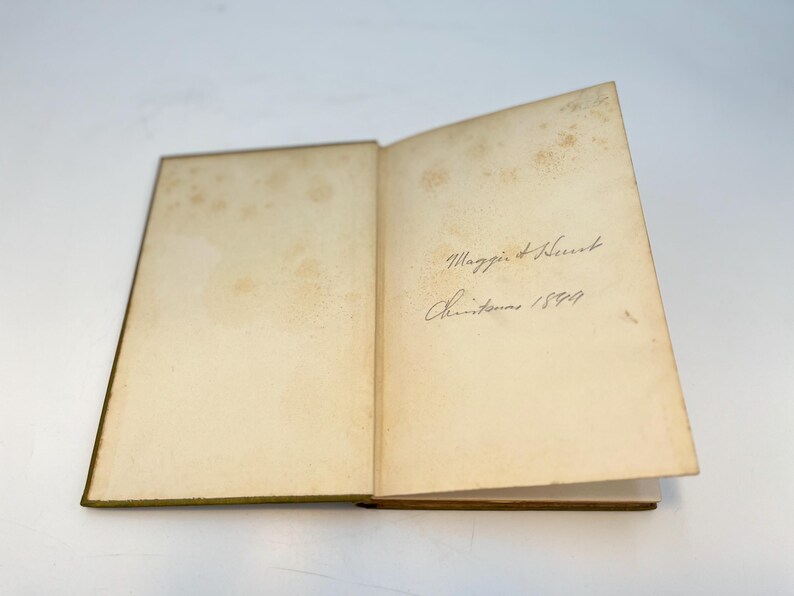 Maggie A Hurst
Christmas 1899